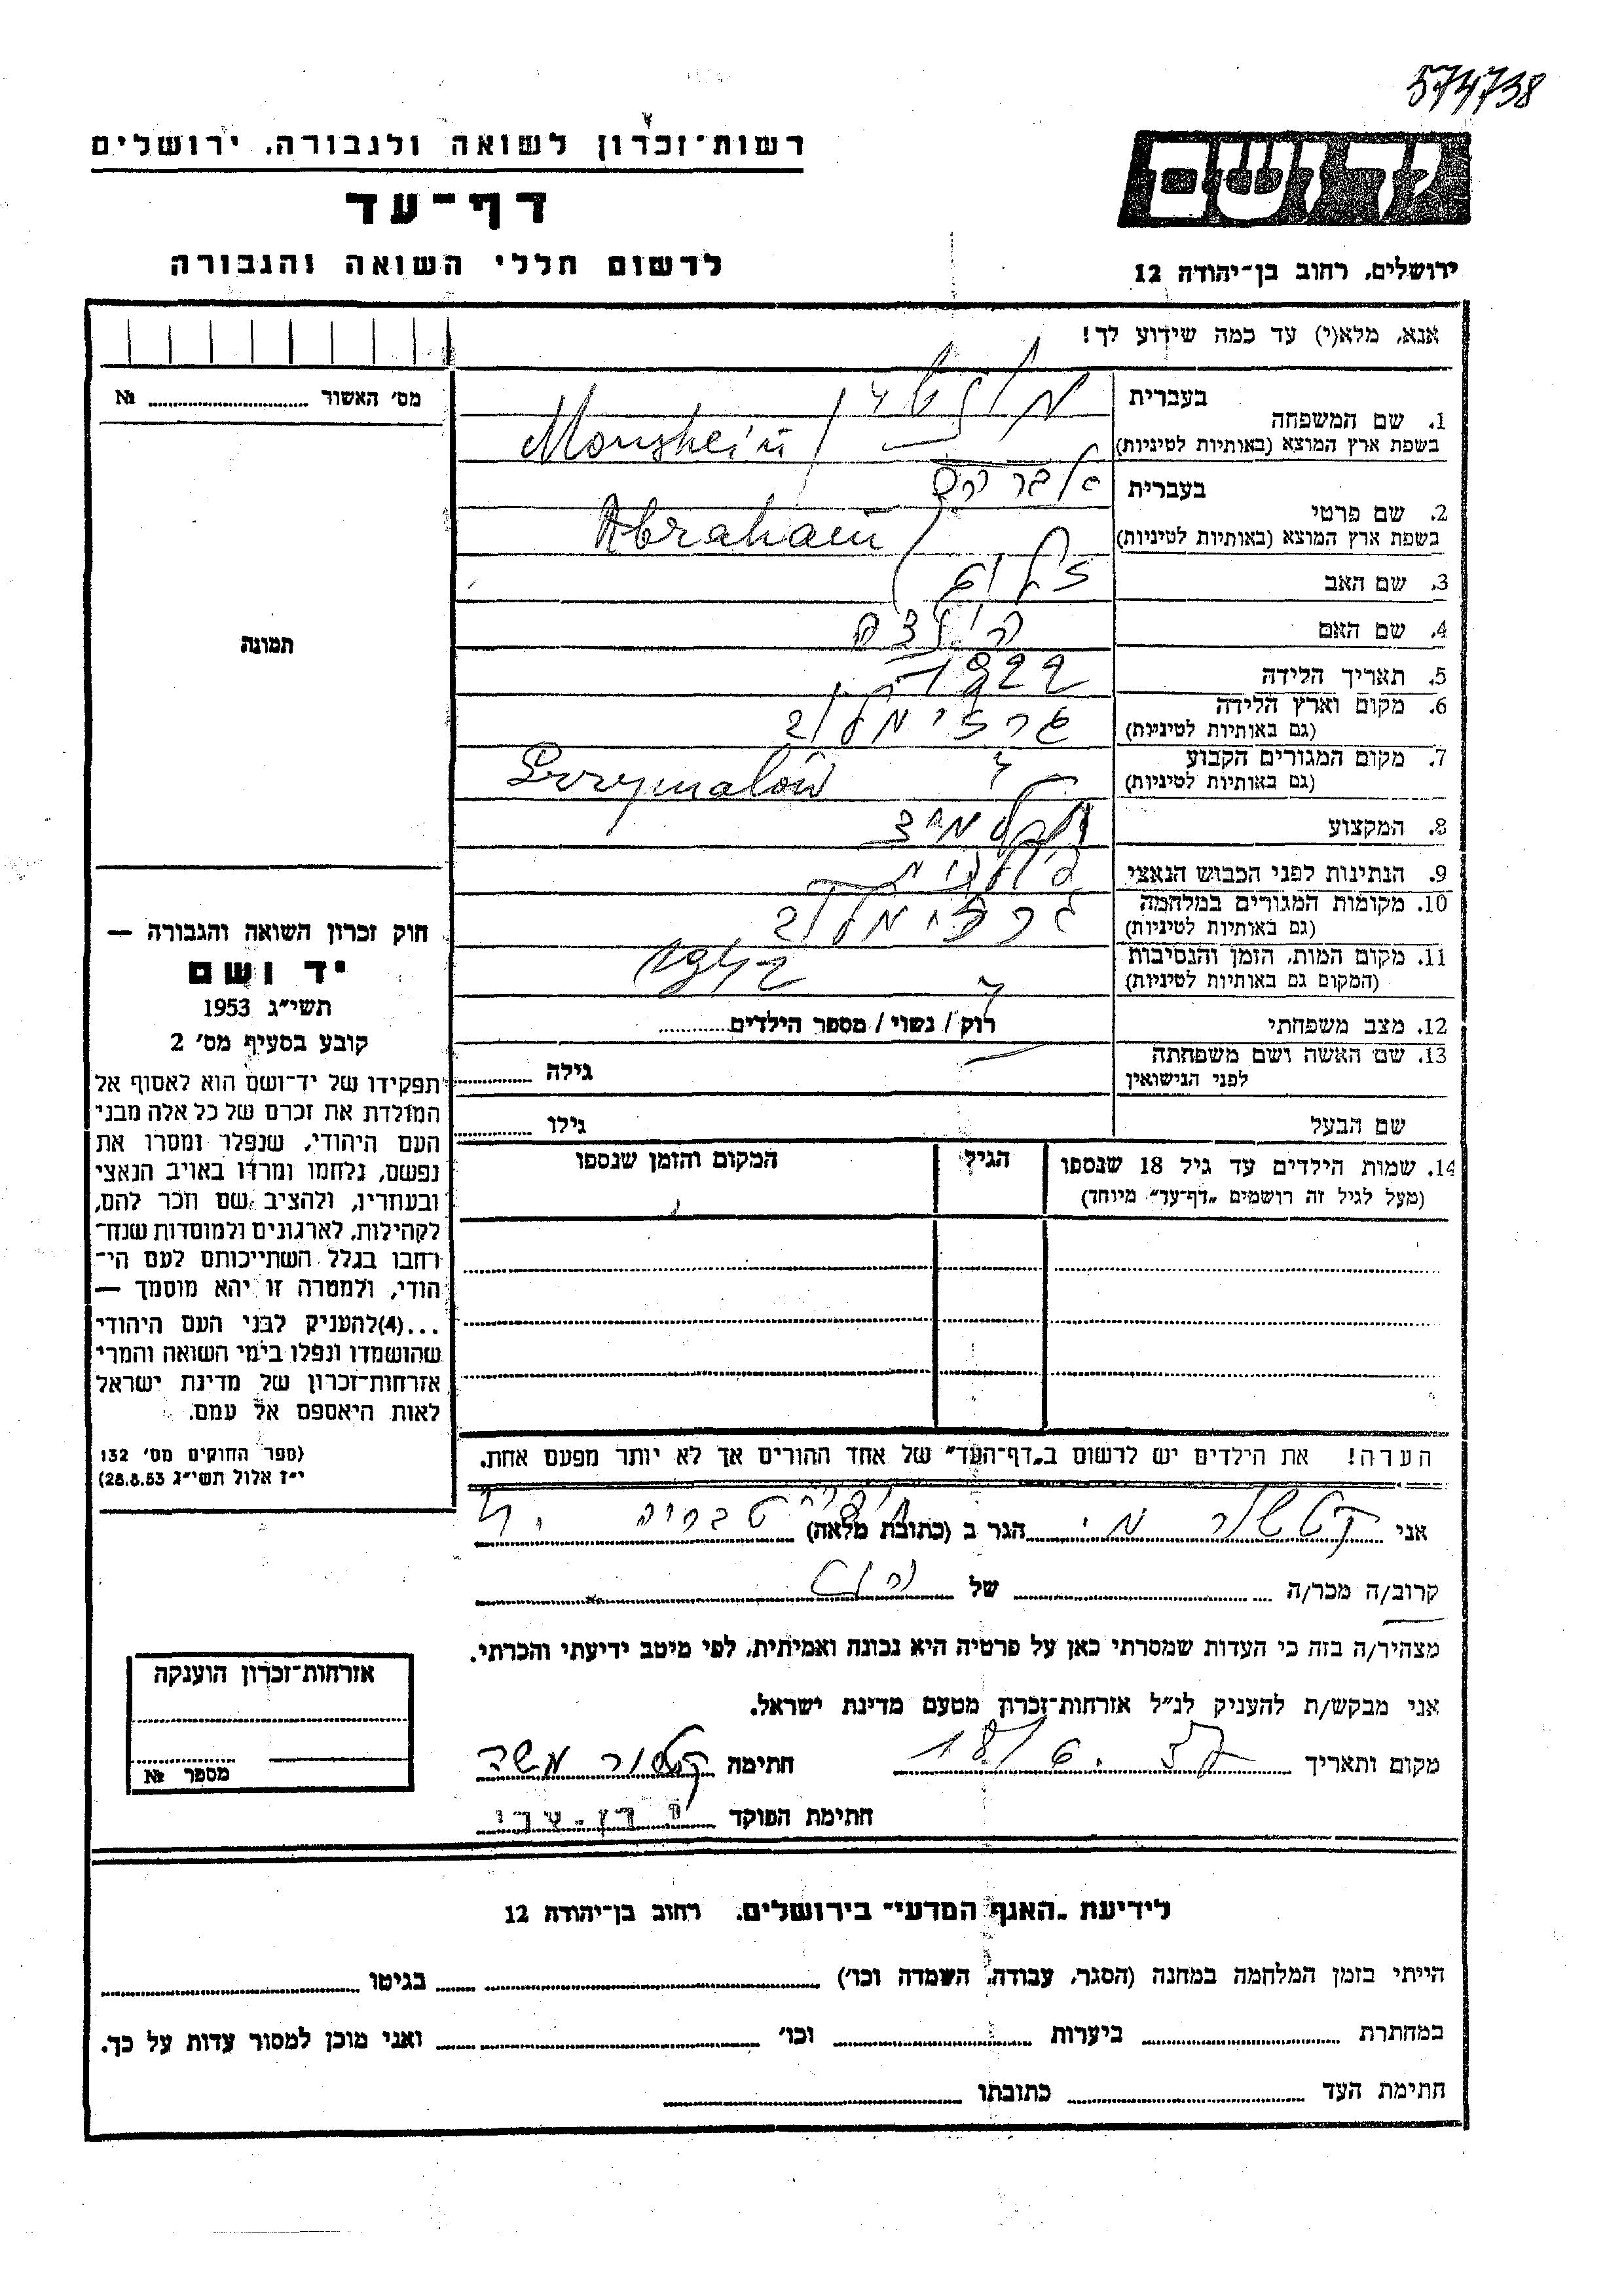 574738
ידושם
רשות־זכרון לשואה ולגבורה, ירושלים
דף־עד
לרשום חללי השואה והגבורה
ירושלים, רחוב בן־יהודה 12
אנא, מלא(י) עד כמה שידוע לך!
מס׳ האשור № ..........
בעברית
1. שם המשפחה
בשפת ארץ המוצא (באותיות לטיניות) Monsheim
בעברית אברהם
2. שם פרטי
בשפת ארץ המוצא (באותיות לטיניות) Abraham
3. שם האב
4. שם האם
תמונה
5. תאריך הלידה 1922
6. מקום וארץ הלידה גרזימלוב
(גם באותיות לטיניות)
7. מקום המגורים הקבוע
(גם באותיות לטיניות) Grzymalów
8. המקצוע
9. הנתינות לפני הכבוש הנאצי פולנית
10. מקומות המגורים במלחמה גרזימלוב
(גם באותיות לטיניות)
11. מקום המות, הזמן והנסיבות 1942
(המקום גם באותיות לטיניות)
12. מצב משפחתי רוק / נשוי / מספר הילדים..........
13. שם האשה ושם משפחתה
לפני הנישואין גילה ..........
שם הבעל גילו ..........
14. שמות הילדים עד גיל 18 שנספו הגיל המקום והזמן שנספו
(מעל לגיל זה רושמים „דף־עד״ מיוחד)
הערה! את הילדים יש לרשום ב„דף־העד״ של אחד ההורים אך לא יותר מפעם אחת.
חוק זכרון השואה והגבורה —
יד ושם
תשי״ג 1953
קובע בסעיף מס׳ 2
תפקידו של יד־ושם הוא לאסוף אל
המולדת את זכרם של כל אלה מבני
העם היהודי, שנפלו ומסרו את
נפשם, נלחמו ומרדו באויב הנאצי
ובעוזריו, ולהציב שם וזכר להם,
לקהילות, לארגונים ולמוסדות שנח־
רבו בגלל השתייכותם לעם הי־
הודי, ולמטרה זו יהא מוסמך —
...(4)להעניק לבני העם היהודי
שהושמדו ונפלו בימי השואה והמרי
אזרחות־זכרון של מדינת ישראל
לאות היאספם אל עמם.
(ספר החוקים מס׳ 132
י״ז אלול תשי״ג 28.8.53)
אני הגר ב (כתובת מלאה) טבריה
קרוב/ה מכר/ה .......... של
מצהיר/ה בזה כי העדות שמסרתי כאן על פרטיה היא נכונה ואמיתית, לפי מיטב ידיעתי והכרתי.
אני מבקש/ת להעניק לנ״ל אזרחות־זכרון מטעם מדינת ישראל.
מקום ותאריך 18/6.57 חתימה
חתימת הפוקד
אזרחות־זכרון הוענקה
מספר №
לידיעת „האגף המדעי״ בירושלים, רחוב בן־יהודה 12
הייתי בזמן המלחמה במחנה (הסגר, עבודה, השמדה וכו׳) .......... בגיטו ..........
במחתרת .......... ביערות .......... וכו׳ .......... ואני מוכן למסור עדות על כך.
חתימת העד .......... כתובתו ..........